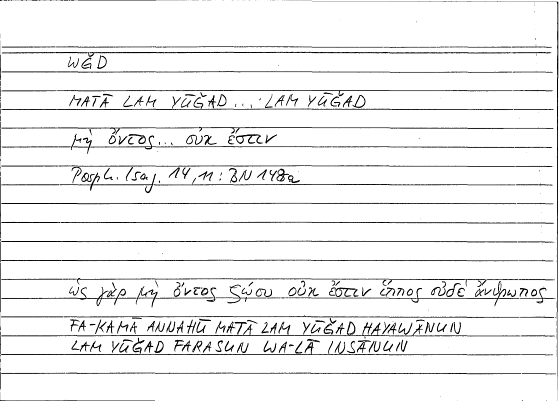 WǦD
MATĀ LAM YŪǦAD ... LAM YŪǦAD
μὴ ὄντος ... οὐκ ἔστιν
Porph. Isag. 14, 11 : BN 148a
ὡς γὰρ μὴ ὄντος ζῴου οὐκ ἔστιν ἵππος οὐδὲ ἄνθρωπος
FA-KAMĀ ANNAHŪ MATĀ LAM YŪǦAD HAYAWĀNUN
LAM YŪǦAD FARASUN WA-LĀ INSĀNUN